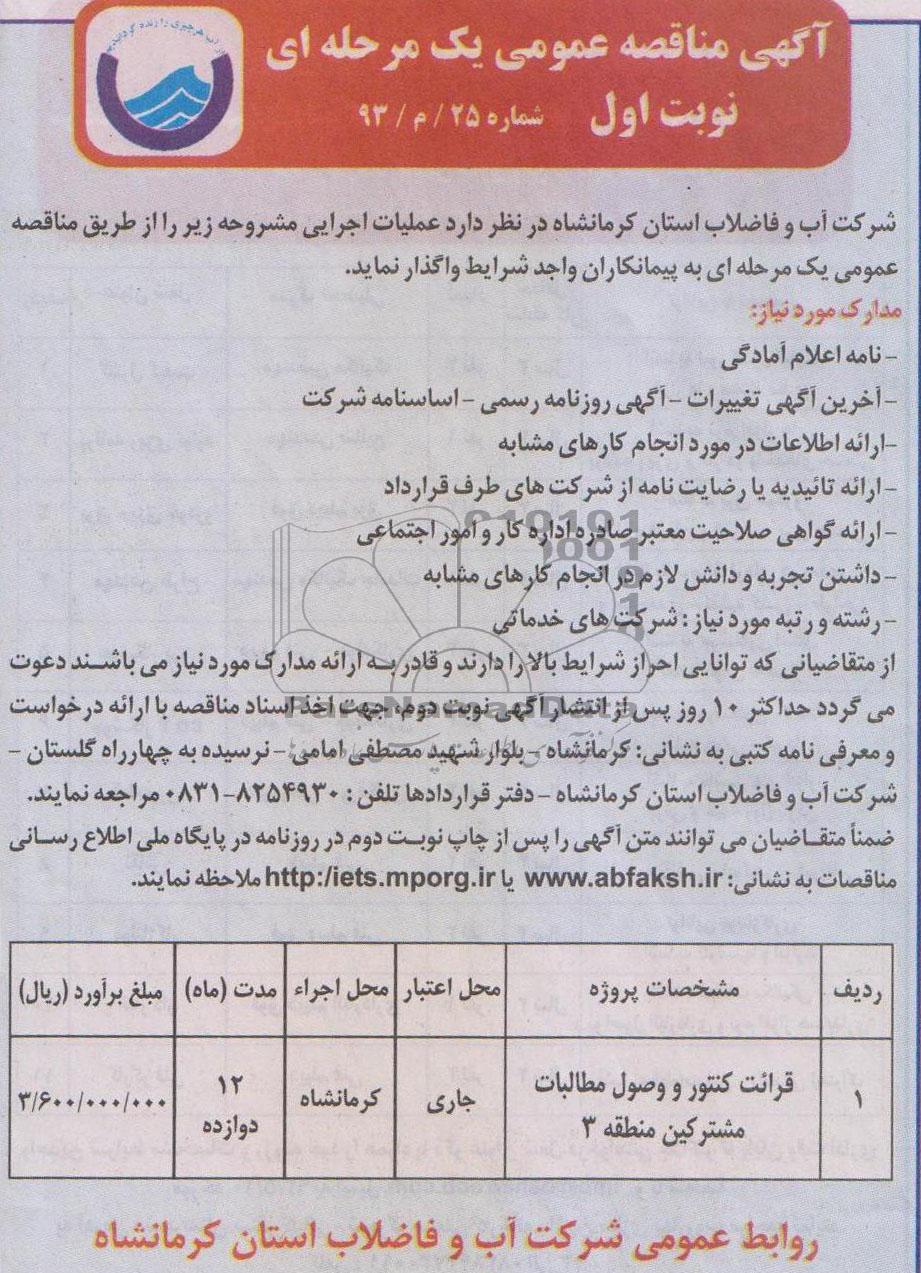 آگهی مناقصه عمومی یک مرحله ای
نوبت اول شماره ۲۵ / م / ۹۳
شرکت آب و فاضلاب استان کرمانشاه در نظر دارد عملیات اجرایی مشروحه زیر را از طریق مناقصه
عمومی یک مرحله ای به پیمانکاران واجد شرایط واگذار نماید.
مدارک مورد نیاز:
- نامه اعلام آمادگی
-آخرین آگهی تغییرات -آگهی روزنامه رسمی - اساسنامه شرکت
-ارائه اطلاعات در مورد انجام کارهای مشابه
- ارائه تائیدیه یا رضایت نامه از شرکت های طرف قرارداد
- ارائه گواهی صلاحیت معتبر صادره اداره کار و امور اجتماعی
- داشتن تجربه و دانش لازم در انجام کارهای مشابه
- رشته و رتبه مورد نیاز : شرکت های خدماتی
از متقاضیانی که توانایی احراز شرایط بالا را دارند و قادر به ارائه مدارک مورد نیاز می باشند دعوت
می گردد حداکثر ۱۰ روز پس از انتشار آگهی نوبت دوم، جهت اخذ اسناد مناقصه با ارائه درخواست
و معرفی نامه کتبی به نشانی: کرمانشاه - بلوار شهید مصطفی امامی - نرسیده به چهارراه گلستان -
شرکت آب و فاضلاب استان کرمانشاه - دفتر قراردادها تلفن : ۸۲۵۴۹۳۰-۰۸۳۱ مراجعه نمایند.
ضمناً متقاضیان می توانند متن آگهی را پس از چاپ نوبت دوم در روزنامه در پایگاه ملی اطلاع رسانی
مناقصات به نشانی: www.abfaksh.ir یا http:/iets.mporg.ir ملاحظه نمایند.
ردیف مشخصات پروژه محل اعتبار محل اجراء مدت (ماه) مبلغ برآورد (ریال)
۱ قرائت کنتور و وصول مطالبات مشترکین منطقه ۳ جاری کرمانشاه ۱۲ دوازده ۳/۶۰۰/۰۰۰/۰۰۰
روابط عمومی شرکت آب و فاضلاب استان کرمانشاه